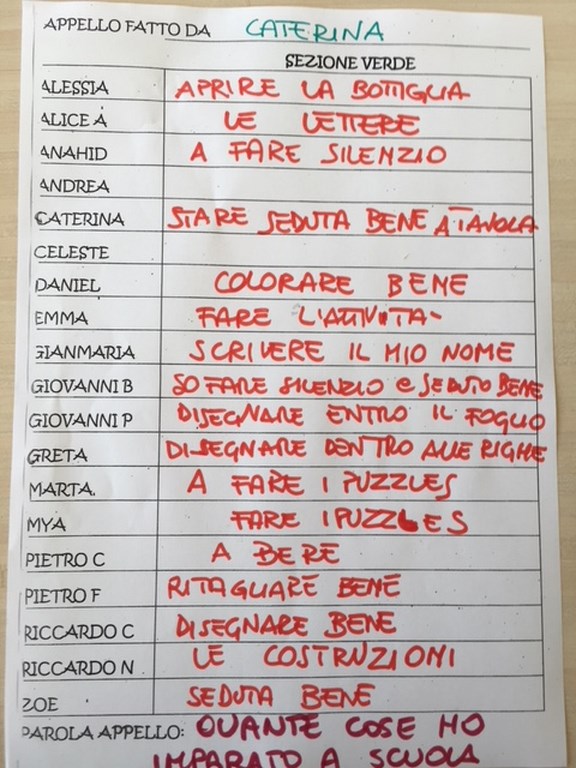 APPELLO FATTO DA CATERINA
SEZIONE VERDE
ALESSIA APRIRE LA BOTTIGLIA
ALICE A LE LETTERE
ANAHID A FARE SILENZIO
ANDREA
CATERINA STARE SEDUTA BENE A TAVOLA
CELESTE
DANIEL COLORARE BENE
EMMA FARE L'ATTIVITA'
GIANMARIA SCRIVERE IL MIO NOME
GIOVANNI B SO FARE SILENZIO e SEDUTO BENE
GIOVANNI P DISEGNARE ENTRO IL FOGLIO
GRETA DISEGNARE DENTRO ALLE RIGHE
MARTA. A FARE I PUZZLES
MYA FARE I PUZZLES
PIETRO C A BERE
PIETRO F RITAGLIARE BENE
RICCARDO C DISEGNARE BENE
RICCARDO N LE COSTRUZIONI
ZOE SEDUTA BENE
PAROLA APPELLO: QUANTE COSE HO
IMPARATO A SCUOLA